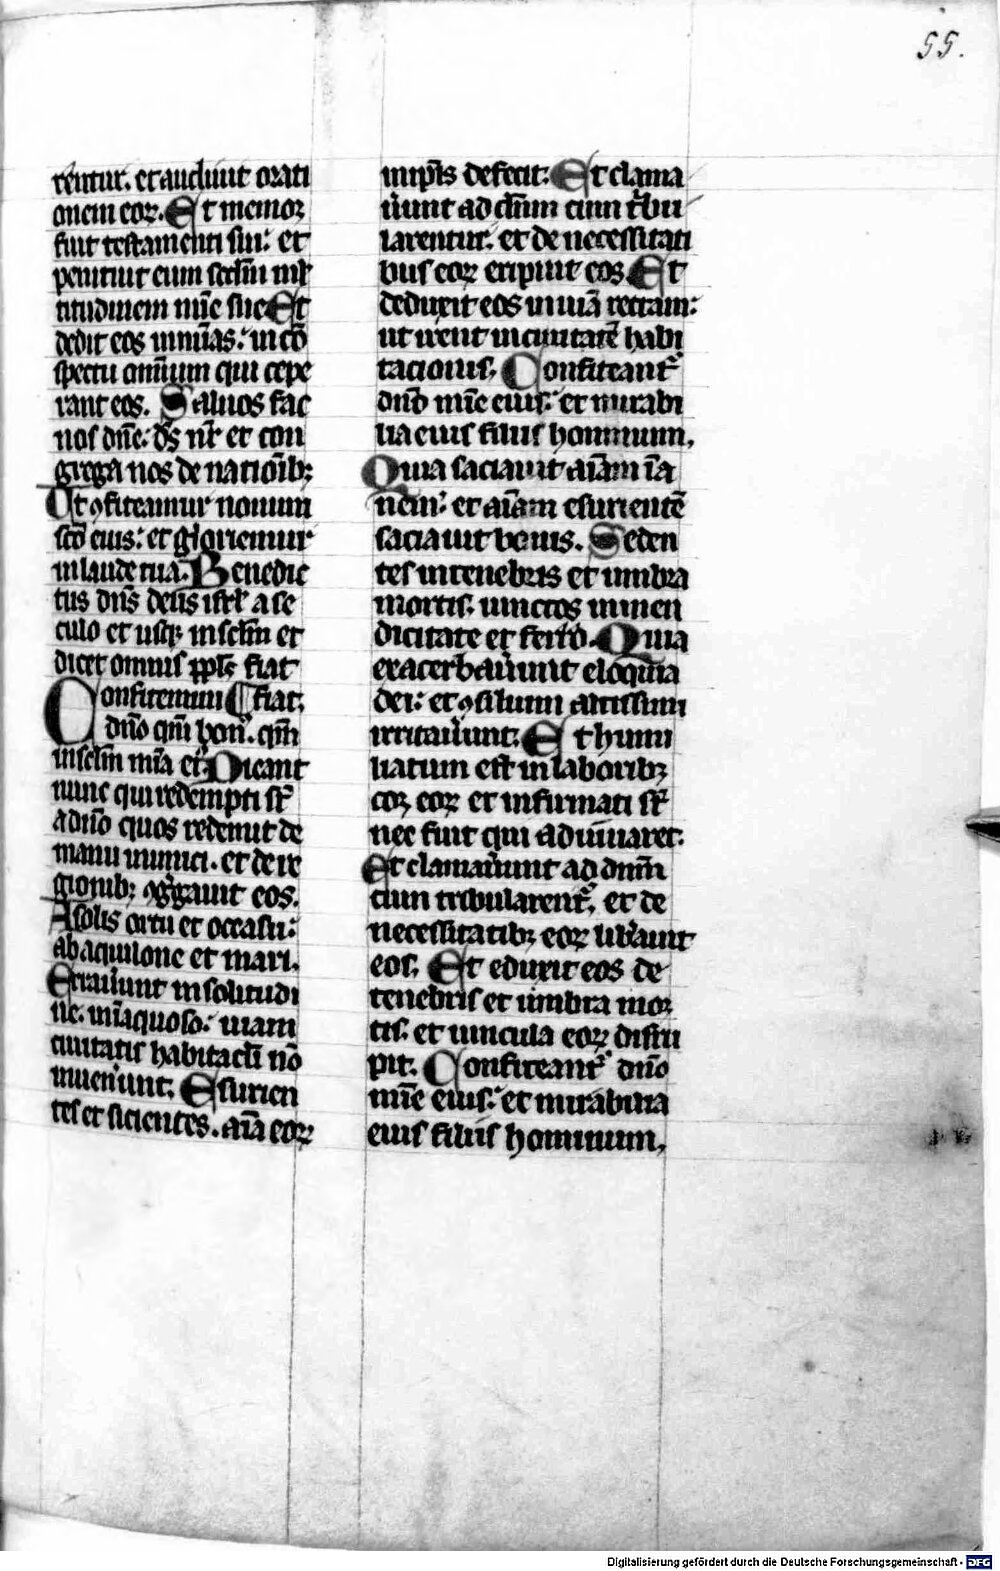 55.
rentur. et audiuit orati
onem eoꝝ. Et memor
fuit testamenti sui: et
penituit eum scd̄m ml̄
titudinem mīe sue Et
dedit eos in mīas: in cō
spectu om̄ium qui cepe
rant eos. Saluos fac
nos dn̄e: dꝰ nr̄ et con
grega nos de nationibꝫ
Ut ꝯfiteamur nomini
scō tuo
in laude tua. Benedic
tus dn̄s deus isrl̄ a se
culo et usqꝫ in sclm̄ et
dicet omnis ppl̄s fiat
Confitemini fiat.
dn̄o qm̄ bonꝰ. qm̄
in sclm̄ mīa eiꝰ. Dicant
nunc qui redempti st̄
a dn̄o quos redemit de
manu inimici. et de re
gionibꝫ ꝯg̊gauit eos.
A solis ortu et occasu:
ab aquilone et mari.
Errauer̄unt in solitudi
ne. in īaquoso: uiam
ciuitatis habitacl̄i nō
inuener̄unt. Esurien
tes et sicientes. aīa eoꝝ
in ip̄is defecit: Et clama
uer̄unt ad dn̄m cum tb̾u
larentur. et de necessitati
bus eoꝝ eripuit eos Et
deduxit eos in uiā rectam:
ut irent in ciuitatē habi
tacionis. Confiteantᷣ
dn̄o mīe eius: et mirabi
lia eius filiis hominum.
Quia saciauit aīam īa
nem: et aīam esurientē
saciauit bonis. Seden
tes in tenebris et umbra
mortis: uinctos in men
dicitate et ferro. Quia
exacerbauer̄unt eloquia
dei: et ꝯsilium altissimi
irritauer̄unt. Et humi
liatum est in laboribꝫ
cor eoꝝ et infirmati st̄
nec fuit qui adiuuaret.
Et clamauer̄unt ad dn̄m
cum tribularentᷣ. et de
necessitatibꝫ eoꝝ lib̾auit
eos. Et eduxit eos de
tenebris et umbra mor
tis: et uincula eoꝝ disru
pit. Confiteantᷣ dn̄o
mīe eius: et mirabilia
eius filiis hominum.
Digitalisierung gefördert durch die Deutsche Forschungsgemeinschaft - DFG